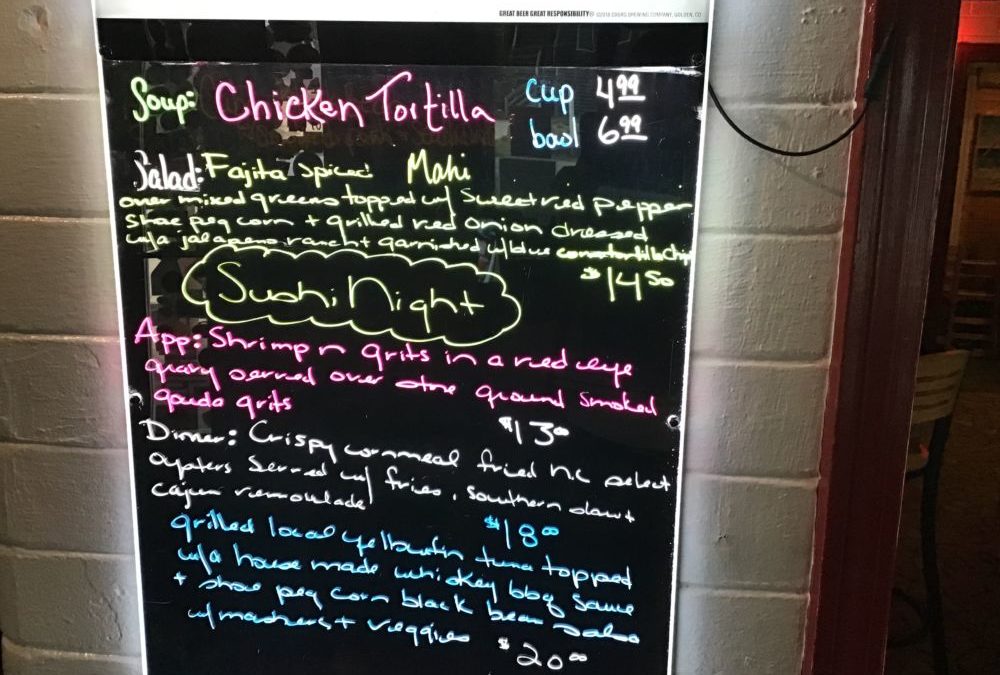 GREAT BEER GREAT RESPONSIBILITY® ©2018 COORS BREWING COMPANY, GOLDEN, CO
Soup: Chicken Tortilla cup 4.99
bowl 6.99
Salad: Fajita Spiced Mahi
over mixed greens topped w/ Sweet red pepper
shoe peg corn + grilled red onion dressed
w/a jalapeno ranch + garnished w/ blue corn tortilla chips
$14.50
Sushi Night
App: Shrimp n grits in a red eye
gravy served over stone ground smoked
gouda grits $13.00
Dinner: Crispy cornmeal fried n.c select
oysters served w/ fries, southern slaw +
cajun remoulade $18.00
grilled local yellowfin tuna topped
w/a house made whiskey bbq sauce
+ shoe peg corn black bean salsa
w/mashers + veggies $20.00